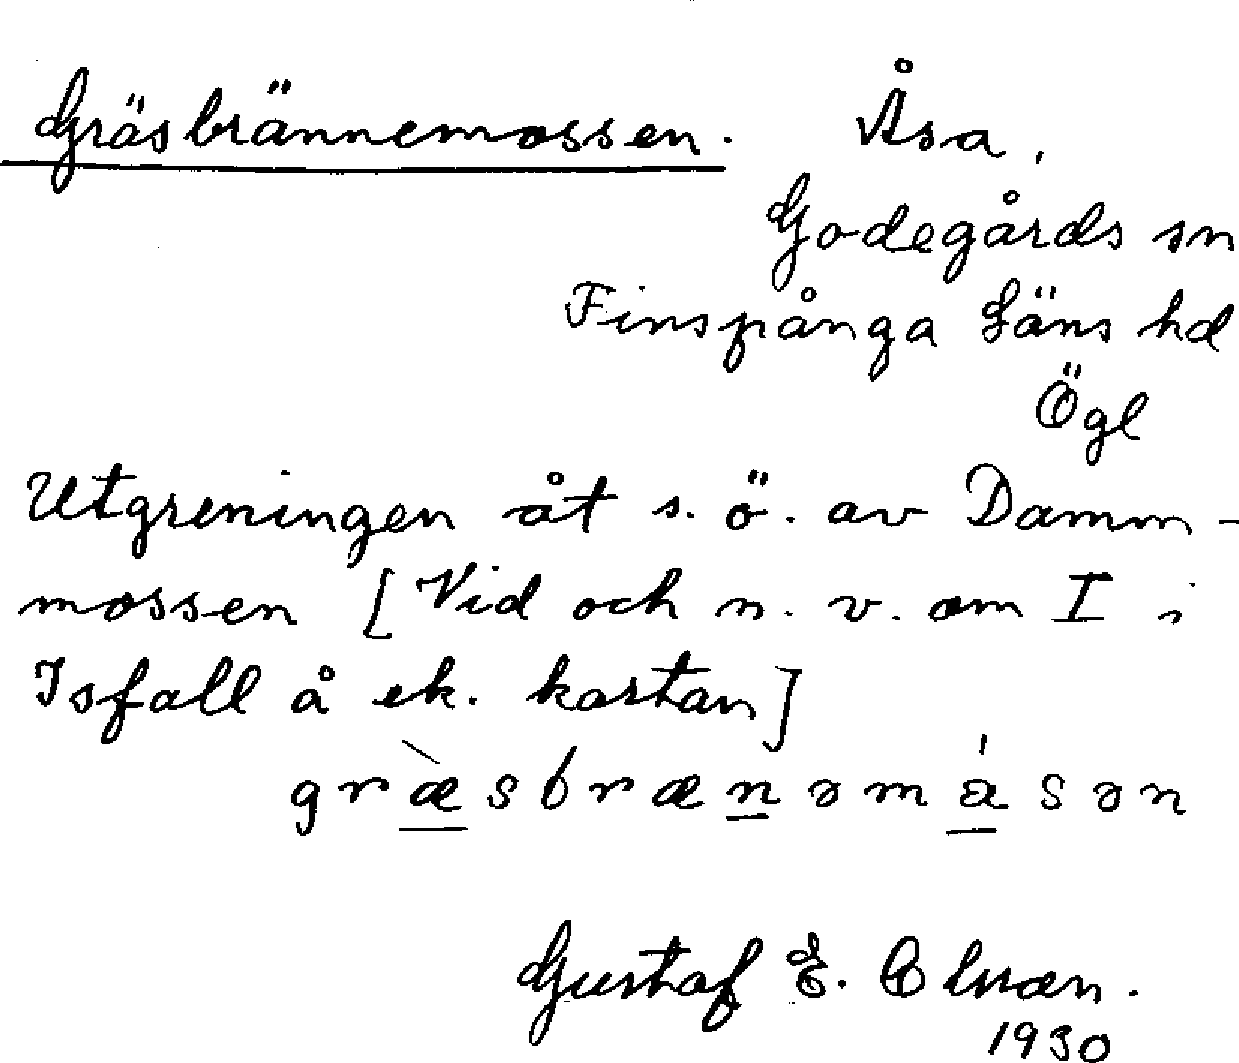 Gräsbrännemossen. Åsa,
Godegårds sn
Finspånga Läns hd
Ögl
Utgreningen åt s. ö. av Damm-
mossen [Vid och n. v. om I i
Isfall å ek. kartan]
græ̀sbrænəmåsən
Gustaf E.
1930